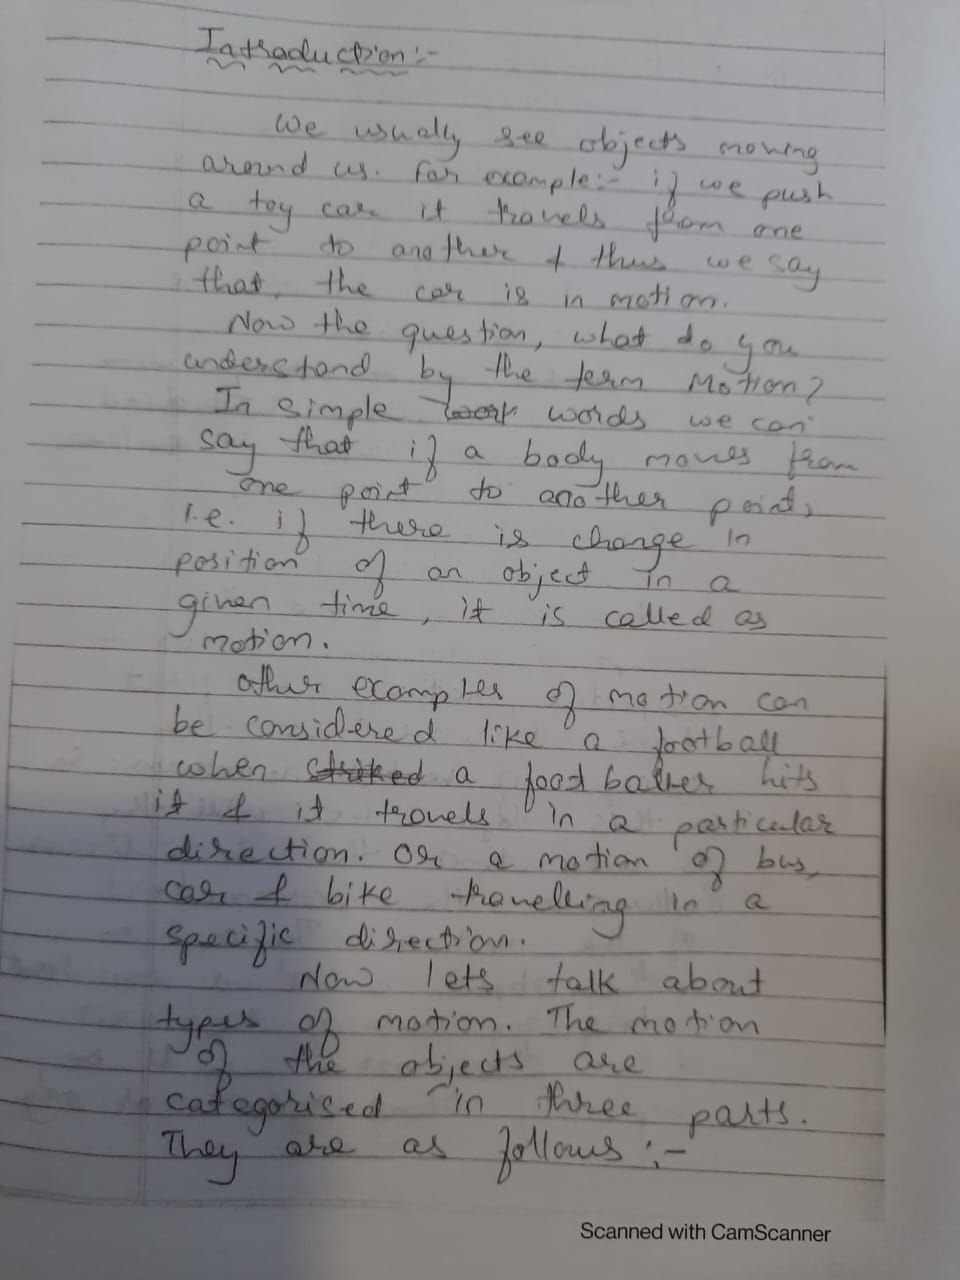 Introduction :-
We usually see objects moving
around us. For example:- if we push
a toy car it travels from one
point to another & thus we say
that the car is in motion.
Now the question, what do you
understand by the term Motion?
In simple words we can
say that if a body moves from
one point to another point,
i.e. if there is change in
position of an object in a
given time, it is called as
motion.
Other examples of motion can
be considered like a football
when striked a footballer hits
it & it travels in a particular
direction. Or a motion of bus,
car & bike travelling in a
specific direction.
Now lets talk about
types of motion. The motion
of the objects are
categorised in three parts.
They are as follows :-
Scanned with CamScanner